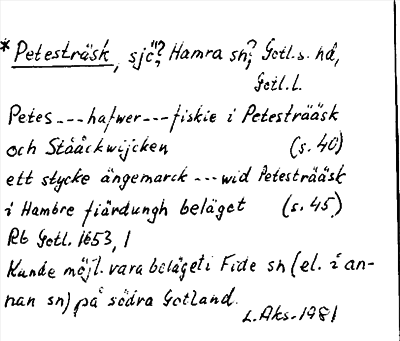 * Petesträsk, sjö? Hamra sn?; Gotl.s. hd,
Gotl.l.
Petes---hafwer---fiskie i Petesträäsk
och Stååckwijcken (s.40)
ett stycke ängemarck ---wid Petesträäsk
i Hambre fiärdungh beläget (s.45)
Rb Gotl. 1653,1
Kunde möjl. vara beläget i Fide sn (el. i an-
nan sn) på södra Gotland.
L.Aks-1981